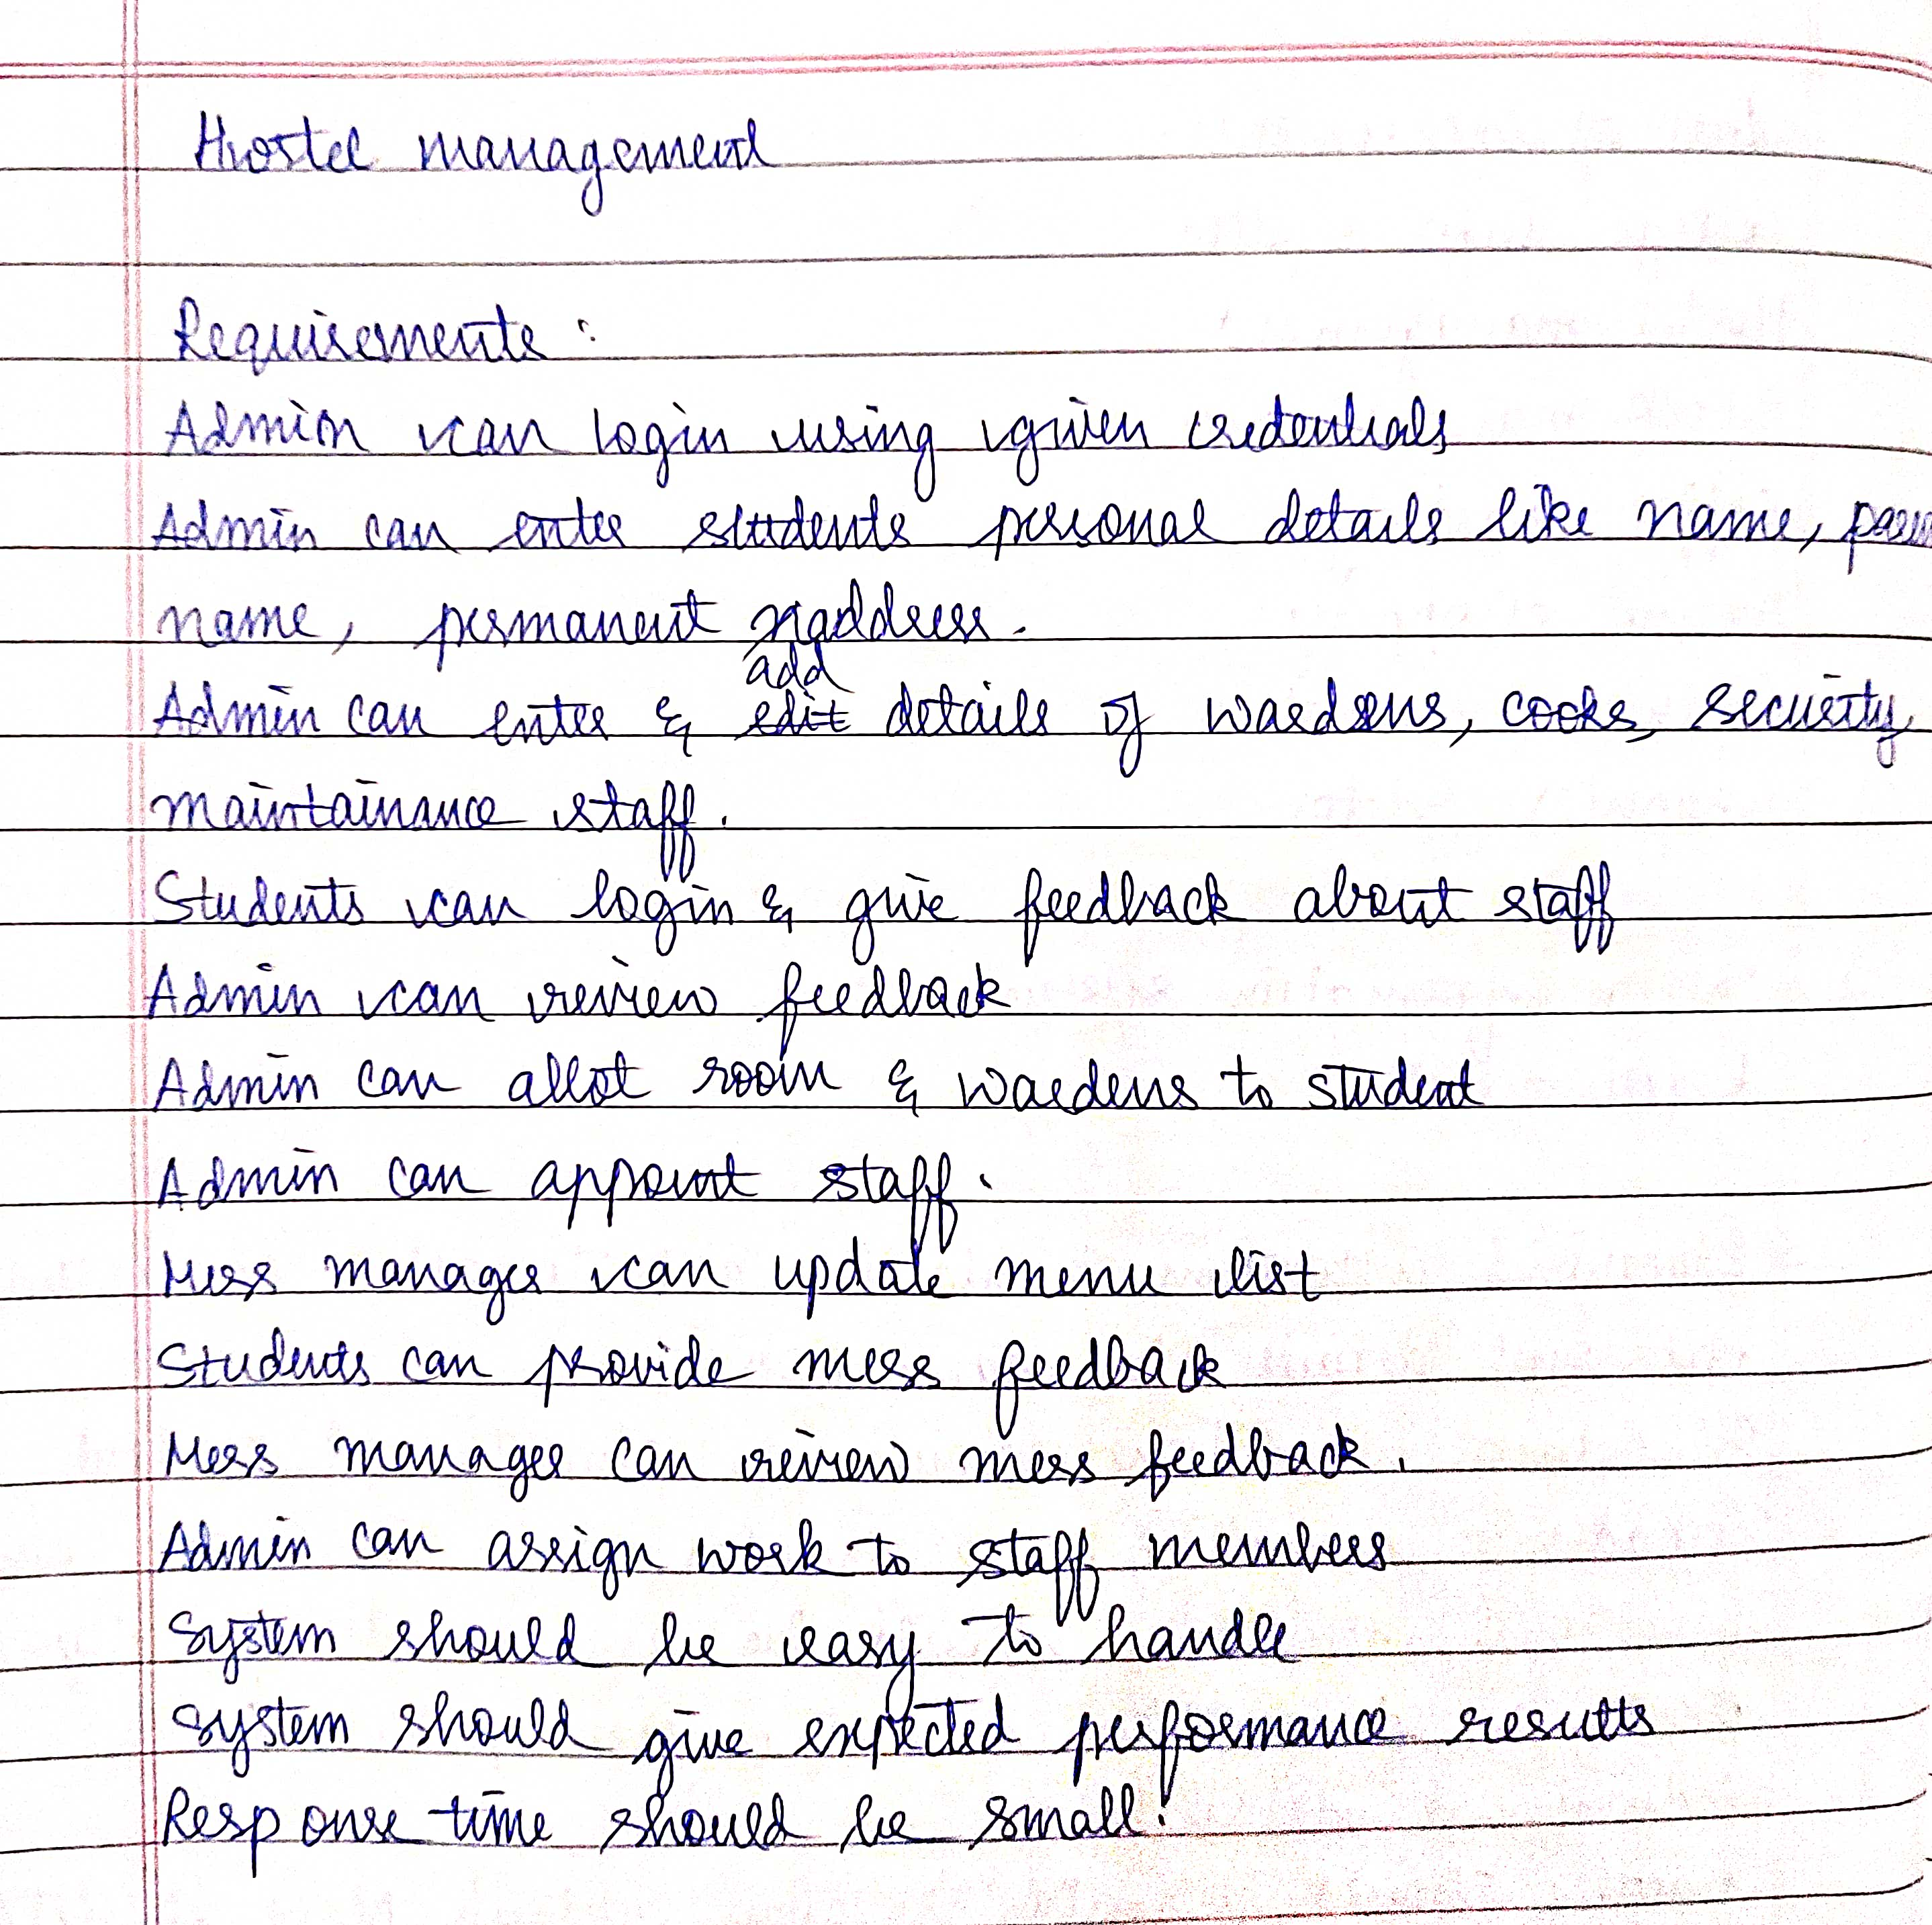 Hostel management
Requirements :
Admin can login using given credentials
Admin can enter students personal details like name,
name, permanent address.
add
Admin can enter & edit details of wardens, cooks, security,
maintainance staff.
Students can login & give feedback about staff
Admin can review feedback
Admin can allot room & wardens to student
Admin can appoint staff.
Mess manager can update menu list
Students can provide mess feedback
Mess manager can review mess feedback.
Admin can assign work to staff members
System should be easy to handle
System should give expected performance results
Response time should be small.